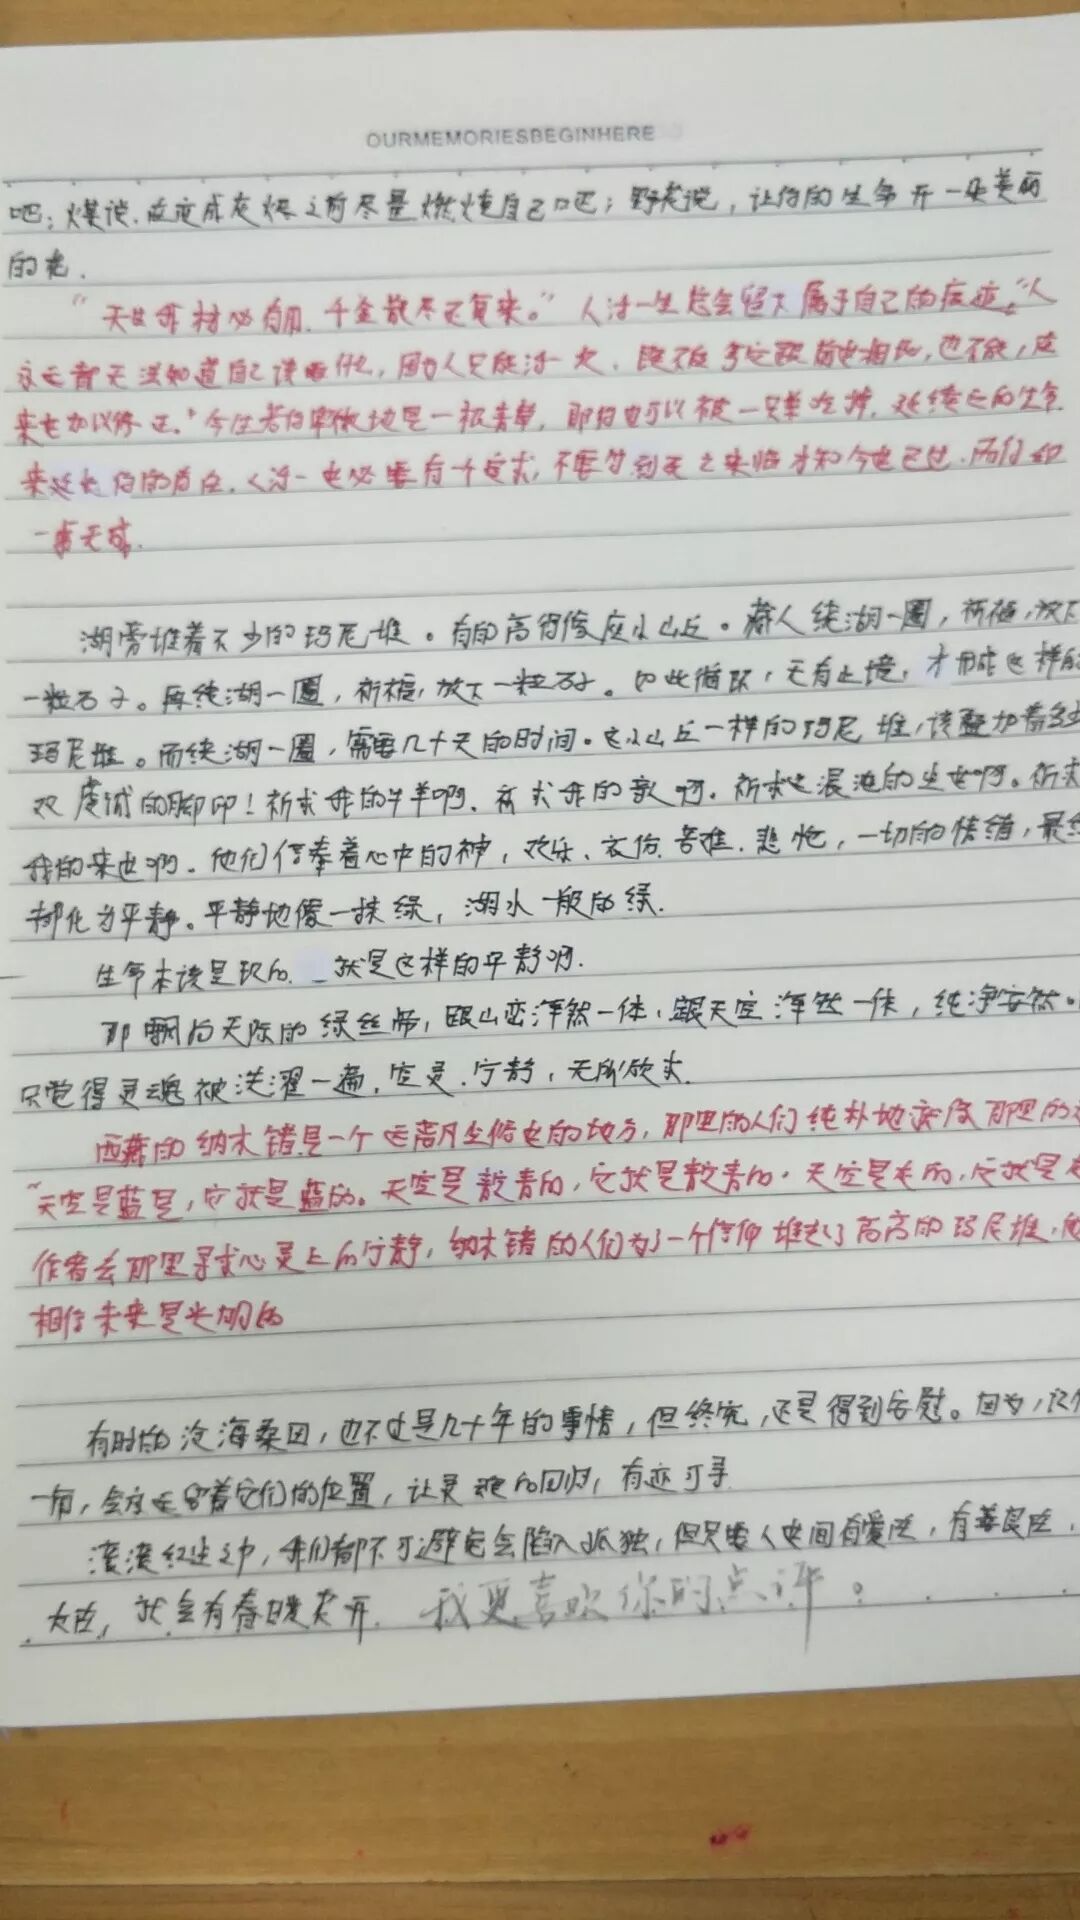 OURMEMORIESBEGINHERE
吧；煤说，应变成灰烬之前尽量燃烧自己吧；野花说，让你的生命开一朵美丽
的花.
"天生我材必有用，千金散尽还复来。"人活一生总会留下属于自己的痕迹。"人
永远都无法知道自己该要什么，因为人只能活一次，既不能拿它跟前世相比，也不能，在
来世加以修正."今生若你卑微地是一根青草，那你也可以被一只羊吃掉，延续它的生命
来延长你的自在.人活一世必要有个追求，不要等到死之来临才知今世已过.而仍如
一事无成.
湖旁堆着不少的玛尼堆。有的高得像座小山丘。藏人绕湖一圈，祈福，放下
一粒石子。再绕湖一圈，祈福，放下一粒石子。如此循环，无有止境，才形成这样的
玛尼堆。而绕湖一圈，需要几十天的时间。这小山丘一样的玛尼堆，该叠加着多少
双虔诚的脚印！祈求我的牛羊啊.祈求我的家啊.祈求这混沌的尘世啊。祈求
我的来世啊。他们信奉着心中的神，欢乐、哀伤、苦难、悲怆，一切的情绪，最终
都化为平静。平静地像一抹绿，湖水一般的绿.
生命本该是 就是这样的平静啊.
那飘向天际的绿丝带，跟山峦浑然一体，跟天空浑然一体，纯净安然。
只觉得灵魂被洗濯一遍.空灵.宁静，无所欲求.
西藏的纳木错是一个远离凡尘俗世的地方，那里的人们纯朴地 那里的
"天空是蓝是，它就是蓝的。天空是靛青的，它就是靛青的。天空是 的，它就是
作者去那里寻求心灵上的宁静，纳木错的人们为了一个信仰堆起了高高的玛尼堆，他
相信未来是光明的
有时的沧海桑田，也不过是几十年的事情，但终究，还是得到安慰。因为，记忆
一角，会永远留着它们的位置，让灵魂的回归，有迹可寻.
滚滚红尘之中，我们都不可避免会陷入孤独，但只要人世间有爱在，有善良在，
大在，就会有春暖花开. 我更喜欢你的点评。